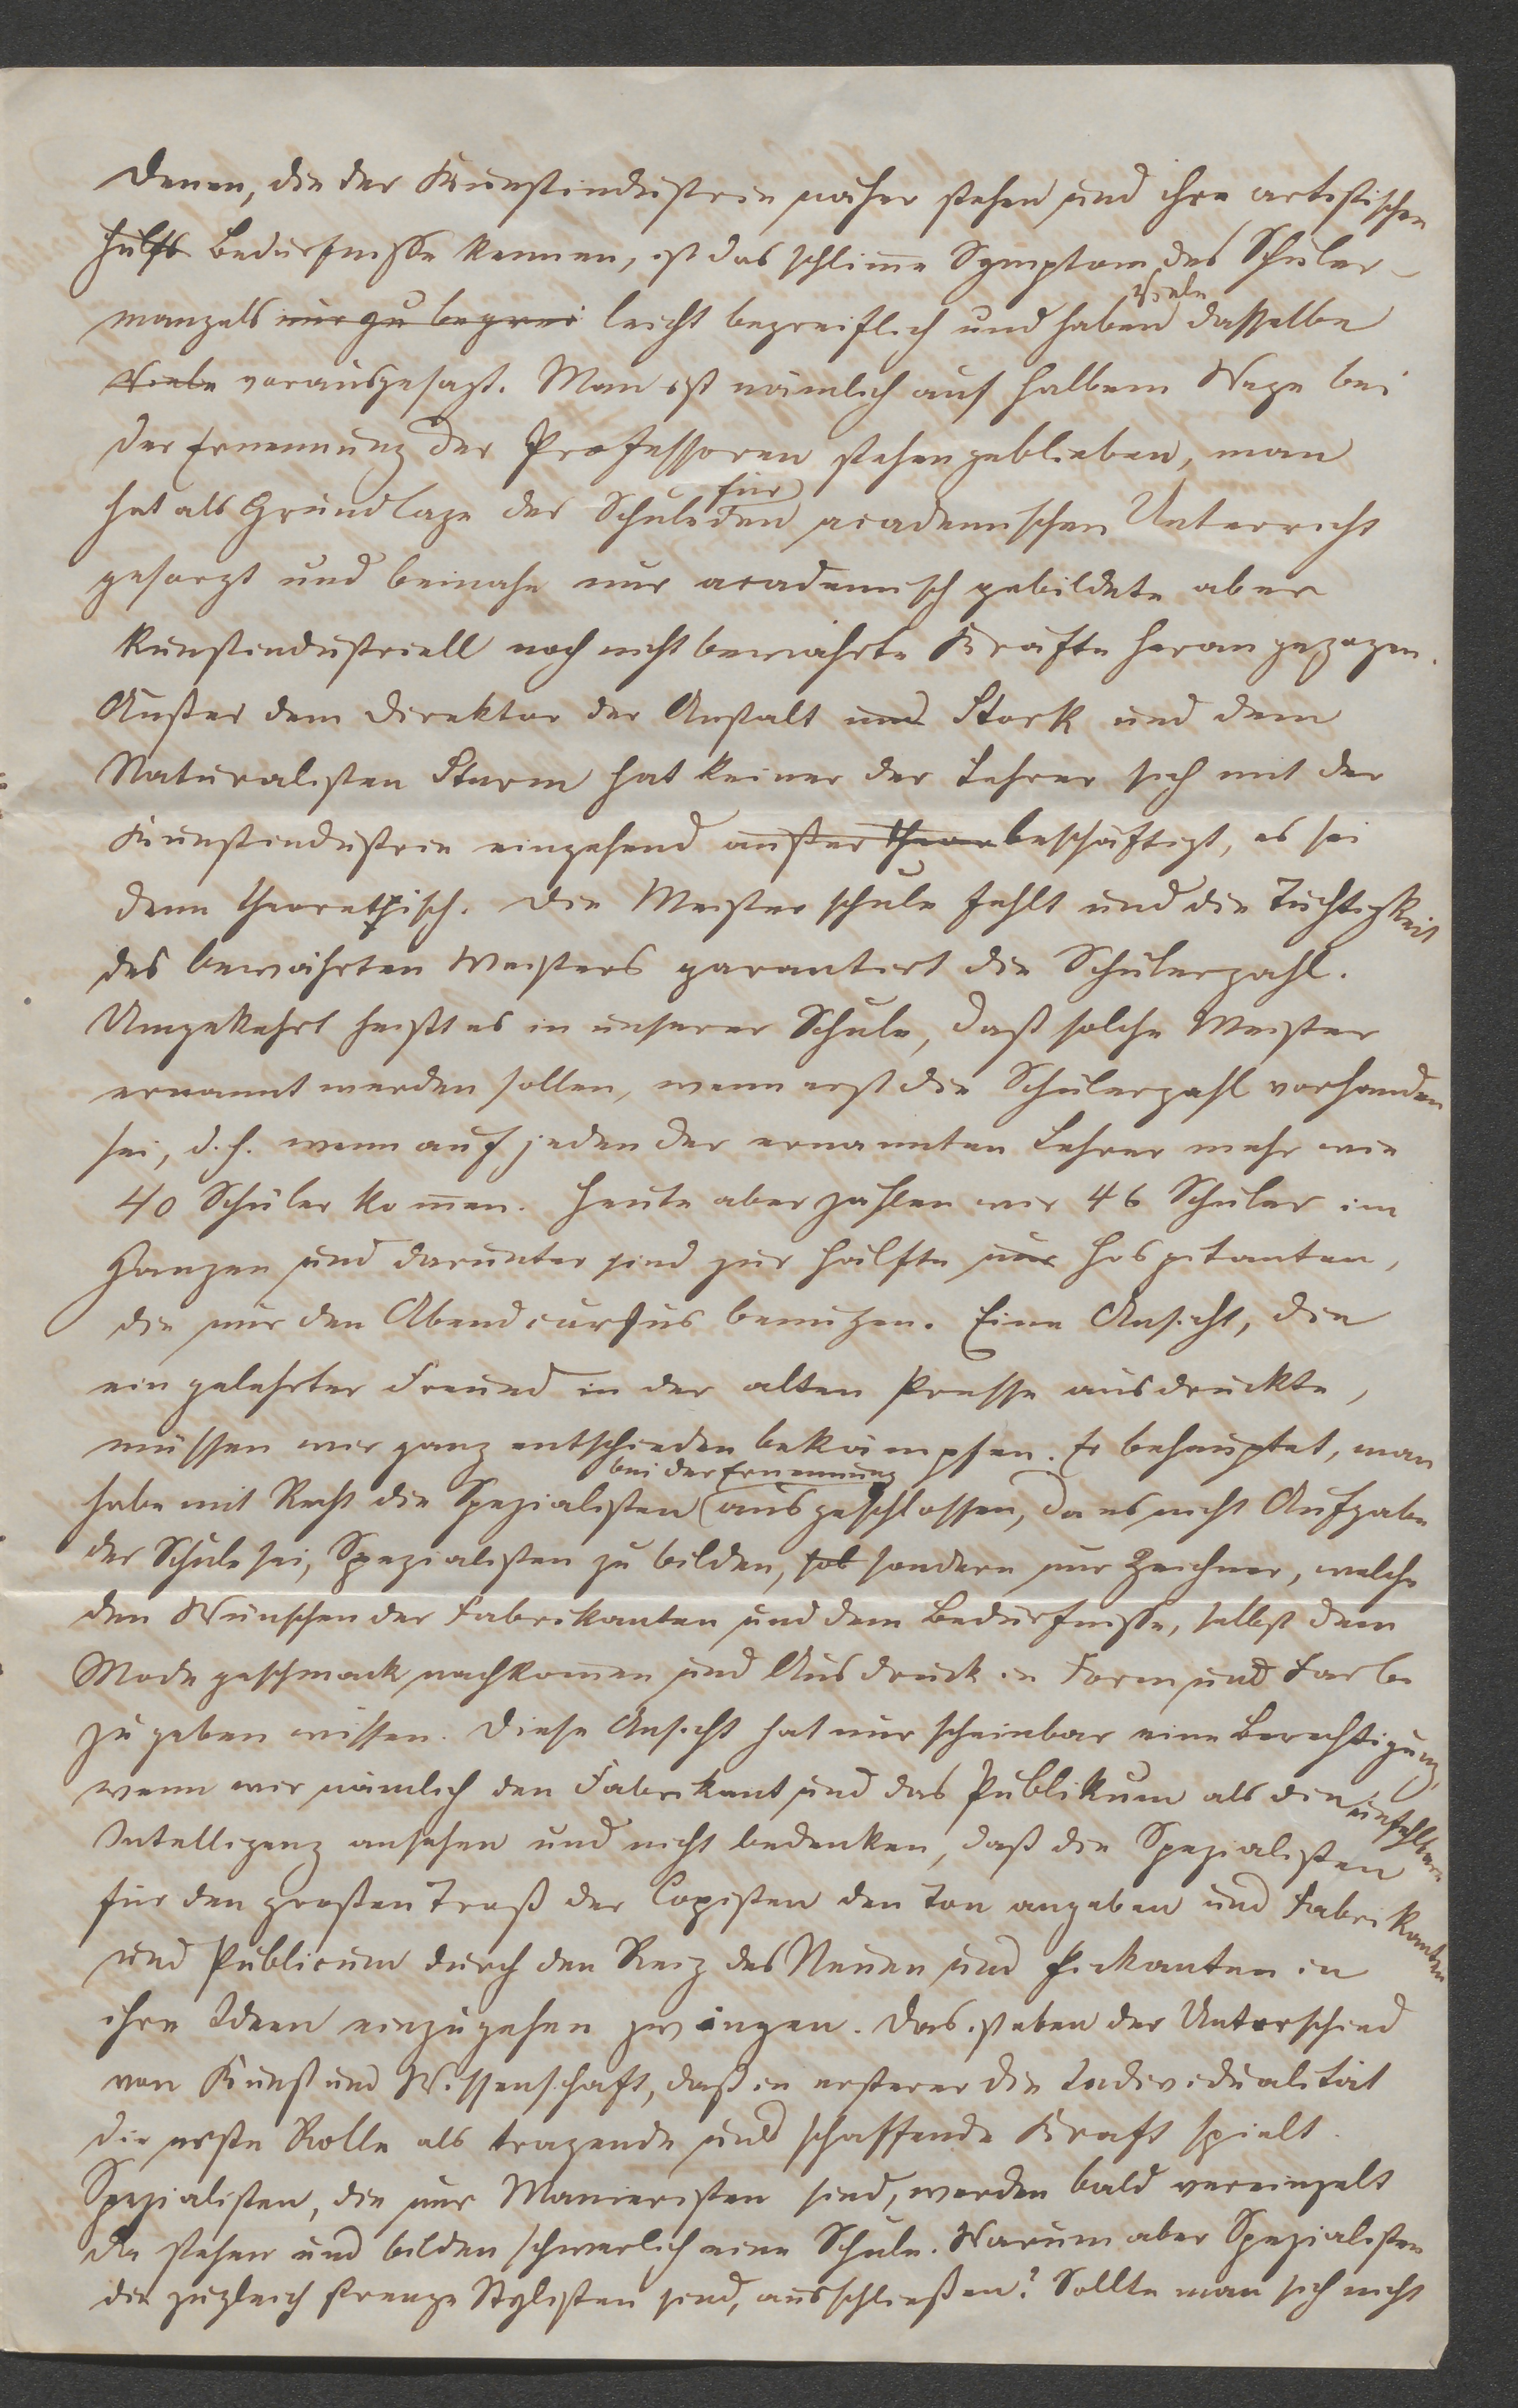 Denen, die der Kunstindustrie näher stehen und ihre artistischen
Hülfs Bedürfnisse kennen, ist das schlimme Symptom des Schüler-
mangels nur zu begrei leicht begreiflich und haben Viele dasselbe
Viele vorausgesagt. Man ist nämlich auf halbem Wege bei
der Ernennung der Professoren stehen geblieben, man
hat als Grundlage der Schule für den academischen Unterricht
gesorgt und beinahe nur academisch gebildete aber
kunstindustriell noch nicht bewährte Kräfte herangezogen.
Außer dem Direktor der Anstalt und Stork und dem
Naturalisten Sturm hat keiner der Lehrer sich mit der
Kunstindustrie eingehend außer theor beschäftigt, es sei
denn theoretisch. Die Meisterschule fehlt und die Tüchtigkeit
des bewährten Meisters garantirt die Schülerzahl.
Umgekehrt heißt es in unserer Schule, daß solche Meister
ernannt werden sollen, wenn erst die Schülerzahl vorhanden
sei, d. h. wenn auf jeden der ernannten Lehrer mehr wie
40 Schüler kommen. Heute aber zählen wir 46 Schüler im
Ganzen und darunter sind zur Hälfte nur Hospitanten,
die nur den Abendcursus benutzen. Eine Ansicht, die
ein gelehrter Freund in der alten Presse ausdrückte,
müssen wir ganz entschieden bekämpfen. Er behauptet, man
habe mit Recht die Spezialisten bei der Ernennung ausgeschlossen, da es nicht Aufgabe
der Schule sei, Spezialisten zu bilden, sondern nur Zeichner, welche
den Wünschen der Fabrikanten und dem Bedürfnisse, selbst dem
Modegeschmack nachkommen und Ausdruck in Form und Farbe
zu geben wissen. Diese Ansicht hat nur scheinbar eine Berechtigung,
wenn wir nämlich den Fabrikant und das Publikum als die unfehlbare
Intelligenz ansehen und nicht bedenken, daß die Spezialisten
für den großen Troß der Copisten den Ton angeben und Fabrikanten
und Publicum durch den Reiz des Neuen und Pickanten in
ihre Ideen einzugehen zwingen. Das ist eben der Unterschied
von Kunst und Wissenschaft, daß in ersterer die Individualität
die erste Rolle als tragende und schaffende Kraft spielt.
Spezialisten, die nur Manieristen sind, werden bald vereinzelt
da stehen und bilden schwerlich eine Schule. Warum aber Spezialisten
die zugleich strenge Stylisten sind, ausschließen? Sollte man sich nicht